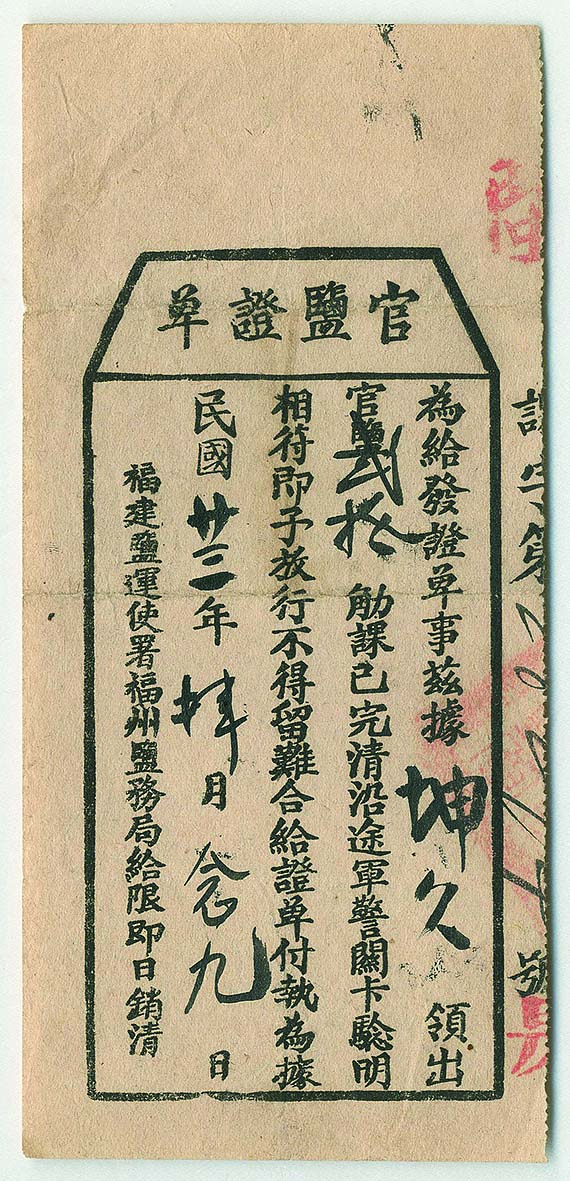 官鹽證單
為給發證单事茲據坤久領出
官鹽貳拾觔課已完清沿途軍警關卡騐明
相符即予放行不得留難合給證单付執為據
民國廿三年拾月念九日
福建鹽運使署福州鹽務局給限即日銷清
字第
號